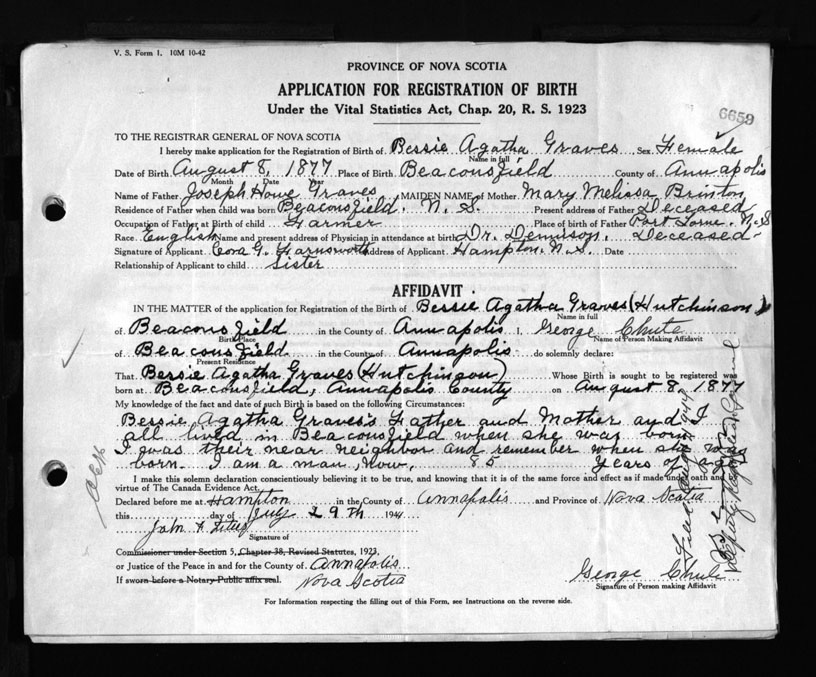 V. S. Form 1. 10M 10-42
PROVINCE OF NOVA SCOTIA
APPLICATION FOR REGISTRATION OF BIRTH
Under the Vital Statistics Act, Chap. 20, R. S. 1923
6659
TO THE REGISTRAR GENERAL OF NOVA SCOTIA
I hereby make application for the Registration of Birth of Bessie Agatha Graves Sex Female
Name in full
Date of Birth August 8, 1877 Place of Birth Beaconsfield County of Annapolis
Month Date Year
Name of Father Joseph Howe Graves MAIDEN NAME of Mother Mary Melissa Brinton
Residence of Father when child was born Beaconsfield. N. S. Present address of Father Deceased
Occupation of Father at Birth of child Farmer Place of birth of Father Port Lorne. N. S
Race English Name and present address of Physician in attendance at birth Dr. Dennison. Deceased
Signature of Applicant Cora G. Farnsworth Address of Applicant Hampton. N. S. Date
Relationship of Applicant to child Sister
AFFIDAVIT
IN THE MATTER of the application for Registration of the Birth of Bessie Agatha Graves (Hutchinson)
Name in full
of Beaconsfield in the County of Annapolis I, George Chute
Birth Place Name of Person Making Affidavit
of Beaconsfield in the County of Annapolis do solemnly declare:
Present Residence
That Bessie Agatha Graves (Hutchinson) Whose Birth is sought to be registered was
born at Beaconsfield, Annapolis County on August 8, 1877
My knowledge of the fact and date of such Birth is based on the following Circumstances:
Bessie Agatha Graves's Father and Mother and I
all lived in Beaconsfield when she was born
I was their near neighbor and remember when she was
born. I am a man, now, 85 Years of age
I make this solemn declaration conscientiously believing it to be true, and knowing that it is of the same force and effect as if made under oath and by
virtue of The Canada Evidence Act.
Declared before me at Hampton in the County of Annapolis and Province of Nova Scotia
this day of July 29th 194
John
Signature of
Commissioner under Section 5, Chapter 38, Revised Statutes, 1923,
or Justice of the Peace in and for the County of Annapolis
If sworn before a Notary Public affix seal. Nova Scotia
George Chute
Signature of Person making Affidavit
For Information respecting the filling out of this Form, see Instructions on the reverse side.